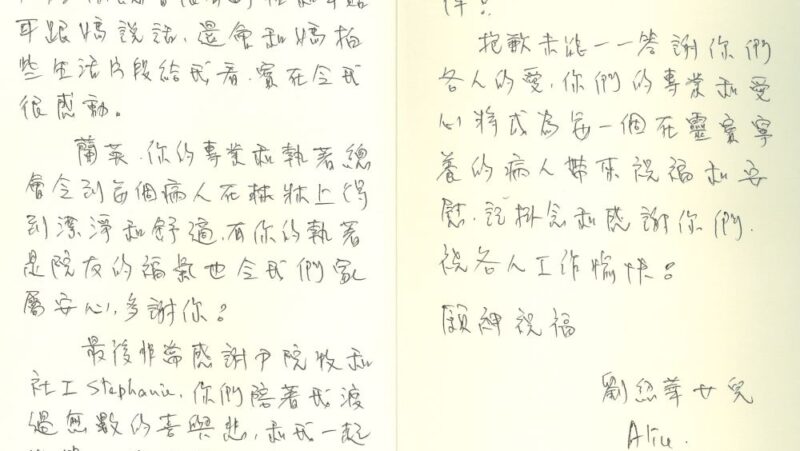 耳跟媽說話,還會和媽拍
些生活片段給我看,實在令我
很感動。
蘭英,你的專業和執著總
會令到每個病人在牀上得
到潔淨和舒適,有你的執著
是院友的福氣也令我們家
屬安心,多謝你!
最後非常感謝尹院牧和
社工Stephanie,你們陪著我渡
過無數的喜與悲,和我一起
抱歉未能一一答謝你們
各人的愛,你們的專業和愛
心將成為每一個在靈實寧
養的病人帶來祝福和安
慰,記掛念和感謝你們.
祝各人工作愉快!
願神祝福
劉華女兒
Alice.